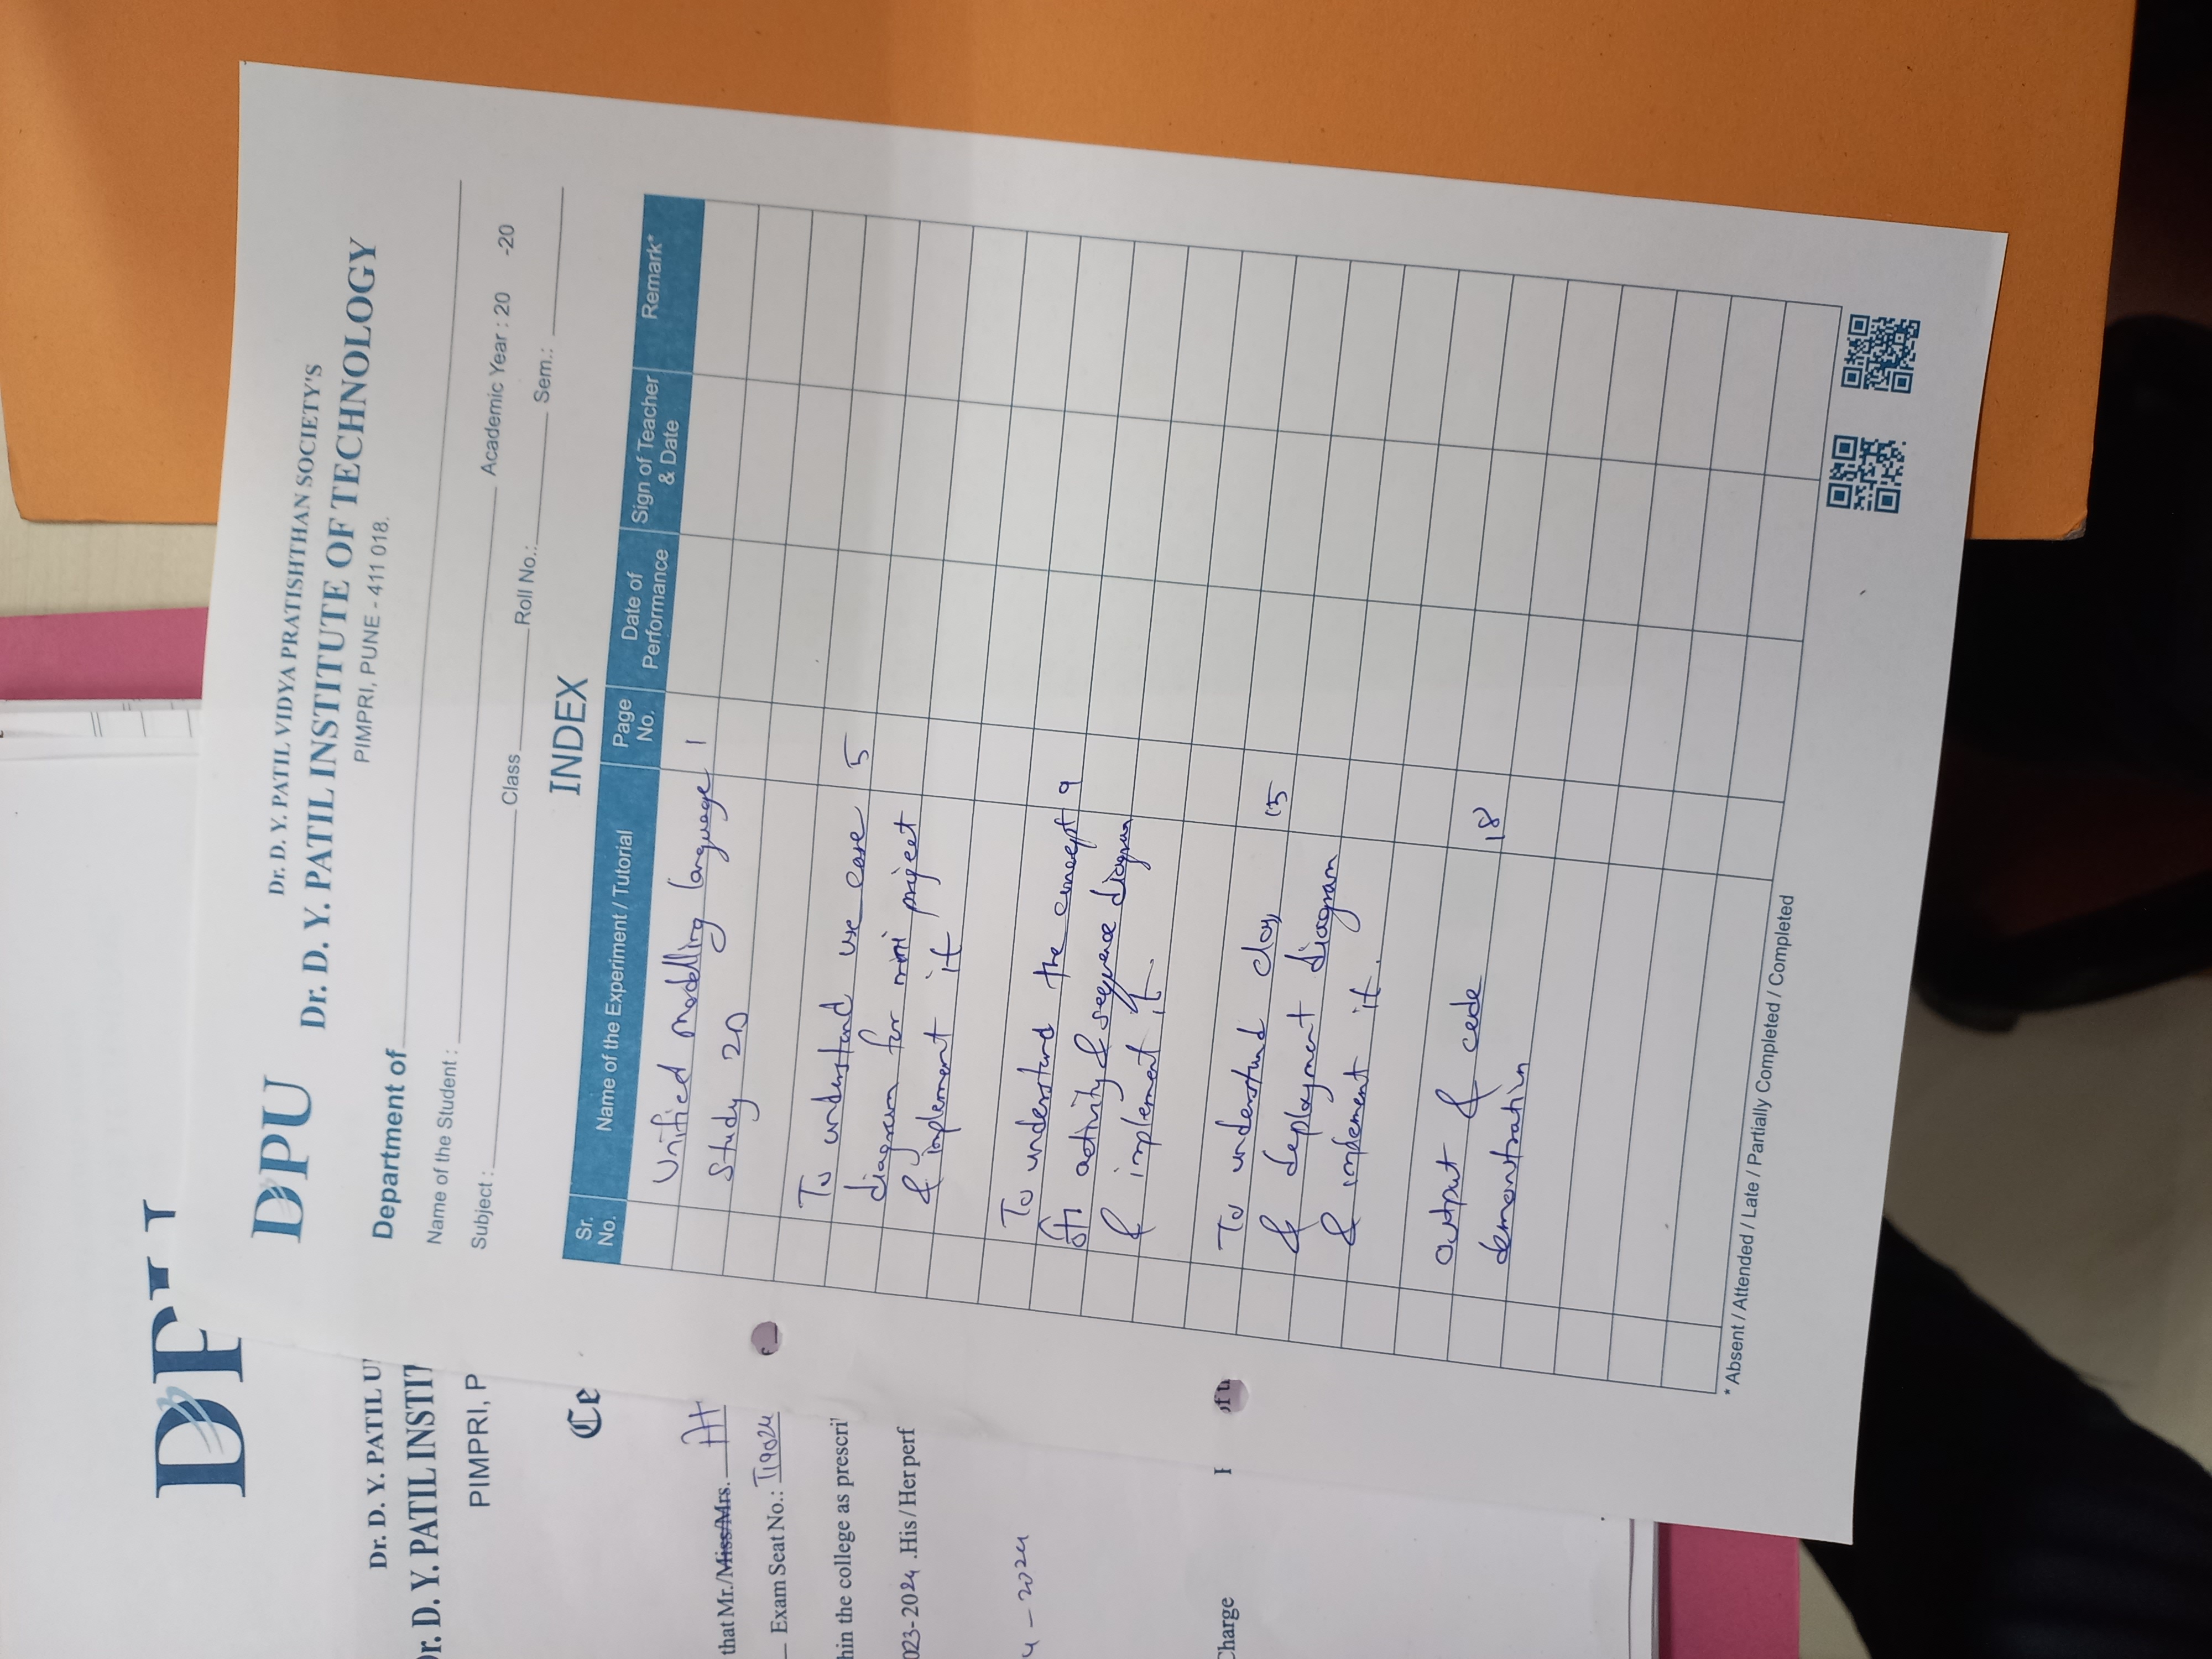 DPU
Dr. D. Y. PATIL U
Dr. D. Y. PATIL INSTIT
PIMPRI, P
Ce
that Mr./Miss/Mrs. At
Exam Seat No.: T19024
hin the college as prescri
023-2024 .His/Her perf
4-2024
Charge
of t
DPU
Dr. D. Y. PATIL VIDYA PRATISHTHAN SOCIETY'S
Dr. D. Y. PATIL INSTITUTE OF TECHNOLOGY
PIMPRI, PUNE - 411 018.
Department of
Name of the Student : Academic Year : 20 -20
Subject : Class Roll No.: Sem.:
INDEX
Sr. No. Name of the Experiment / Tutorial Page No. Date of Performance Sign of Teacher & Date Remark*
Unified Modelling language 1
Study
To understand use case 5
diagram for mini project
& implement it
To understand the concept 9
of activity & sequence diagram
& implement it
To understand class 15
& deployment diagram
& implement it.
output & code 18
demonstration
* Absent / Attended / Late / Partially Completed / Completed